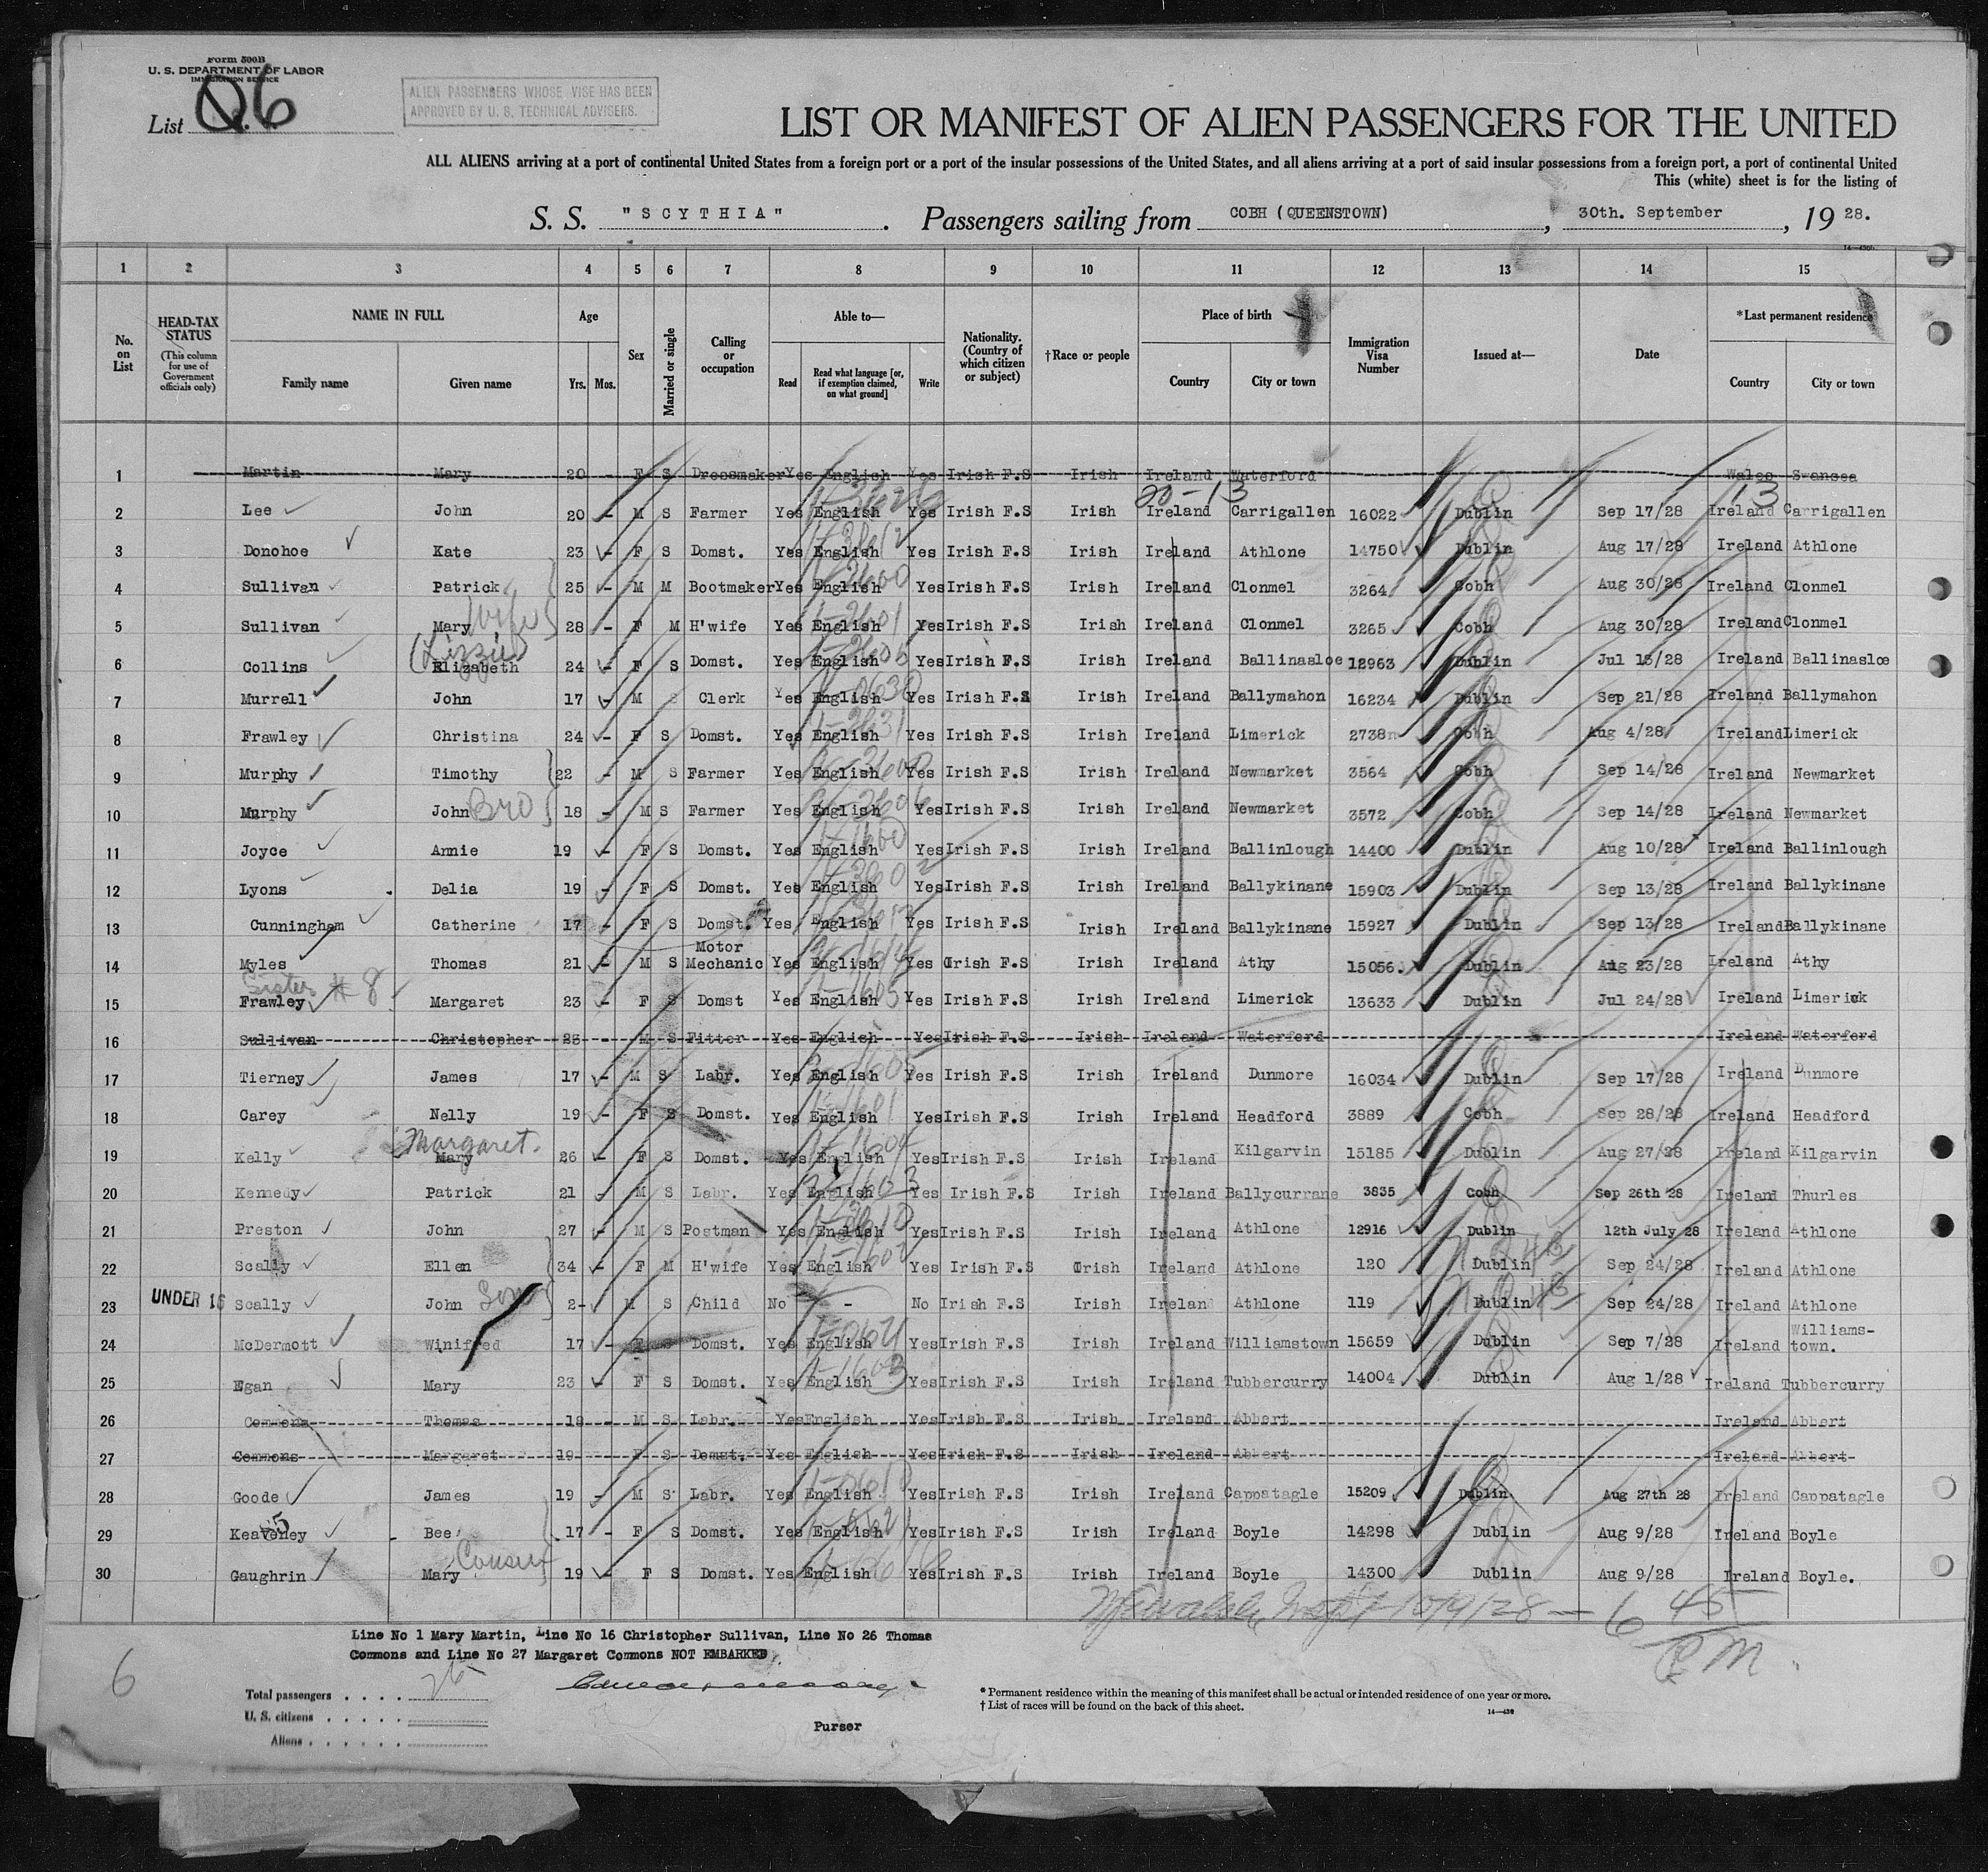 Form 500B
U. S. DEPARTMENT OF LABOR
IMMIGRATION SERVICE
List 6
ALIEN PASSENGERS WHOSE VISE HAS BEEN
APPROVED BY U. S. TECHNICAL ADVISERS.
LIST OR MANIFEST OF ALIEN PASSENGERS FOR THE UNITED
ALL ALIENS arriving at a port of continental United States from a foreign port or a port of the insular possessions of the United States, and all aliens arriving at a port of said insular possessions from a foreign port, a port of continental United
This (white) sheet is for the listing of
S. S. "SCYTHIA". Passengers sailing from COBH (QUEENSTOWN), 30th. September, 1928.
1 2 3 4 5 6 7 8 9 10 11 12 13 14 15
No. on List
HEAD-TAX STATUS (This column for use of Government officials only)
NAME IN FULL Family name Given name
Age Yrs. Mos.
Sex
Married or single
Calling or occupation
Able to— Read Read what language [or, if exemption claimed, on what ground] Write
Nationality. (Country of which citizen or subject)
†Race or people
Place of birth Country City or town
Immigration Visa Number
Issued at—
Date
*Last permanent residence Country City or town
1 Martin Mary 20 - F S Dressmaker Yes English Yes Irish F.S Irish Ireland Waterford Wales Swansea
20-13 13
2 Lee John 20 - M S Farmer Yes English Yes Irish F.S Irish Ireland Carrigallen 16022 Dublin Sep 17/28 Ireland Carrigallen
3 Donohoe Kate 23 - F S Domst. Yes English Yes Irish F.S Irish Ireland Athlone 14750 Dublin Aug 17/28 Ireland Athlone
4 Sullivan Patrick 25 - M M Bootmaker Yes English Yes Irish F.S Irish Ireland Clonmel 3264 Cobh Aug 30/28 Ireland Clonmel
5 Sullivan Mary wife 28 - F M H'wife Yes English Yes Irish F.S Irish Ireland Clonmel 3265 Cobh Aug 30/28 Ireland Clonmel
(Lizzie)
6 Collins Elizabeth 24 - F S Domst. Yes English Yes Irish F.S Irish Ireland Ballinasloe 12963 Dublin Jul 13/28 Ireland Ballinasloe
7 Murrell John 17 - M S Clerk Yes English Yes Irish F.S Irish Ireland Ballymahon 16234 Dublin Sep 21/28 Ireland Ballymahon
8 Frawley Christina 24 - F S Domst. Yes English Yes Irish F.S Irish Ireland Limerick 2738 Cobh Aug 4/28 Ireland Limerick
9 Murphy Timothy 22 - M S Farmer Yes English Yes Irish F.S Irish Ireland Newmarket 3564 Cobh Sep 14/28 Ireland Newmarket
10 Murphy John Bro 18 - M S Farmer Yes English Yes Irish F.S Irish Ireland Newmarket 3572 Cobh Sep 14/28 Ireland Newmarket
11 Joyce Annie 19 - F S Domst. Yes English Yes Irish F.S Irish Ireland Ballinlough 14400 Dublin Aug 10/28 Ireland Ballinlough
12 Lyons Delia 19 - F S Domst. Yes English Yes Irish F.S Irish Ireland Ballykinane 15903 Dublin Sep 13/28 Ireland Ballykinane
13 Cunningham Catherine 17 - F S Domst. Yes English Yes Irish F.S Irish Ireland Ballykinane 15927 Dublin Sep 13/28 Ireland Ballykinane
14 Myles Thomas 21 - M S Motor Mechanic Yes English Yes Irish F.S Irish Ireland Athy 15056 Dublin Aug 23/28 Ireland Athy
Sister # 8
15 Frawley Margaret 23 - F S Domst Yes English Yes Irish F.S Irish Ireland Limerick 13633 Dublin Jul 24/28 Ireland Limerick
16 Sullivan Christopher 23 - M S Fitter Yes English Yes Irish F.S Irish Ireland Waterford Ireland Waterford
17 Tierney James 17 - M S Labr. Yes English Yes Irish F.S Irish Ireland Dunmore 16034 Dublin Sep 17/28 Ireland Dunmore
18 Carey Nelly 19 - F S Domst. Yes English Yes Irish F.S Irish Ireland Headford 3889 Cobh Sep 28/28 Ireland Headford
Margaret.
19 Kelly Mary 26 - F S Domst. Yes English Yes Irish F.S Irish Ireland Kilgarvin 15185 Dublin Aug 27/28 Ireland Kilgarvin
20 Kennedy Patrick 21 - M S Labr. Yes English Yes Irish F.S Irish Ireland Ballycurrane 3835 Cobh Sep 26th 28 Ireland Thurles
21 Preston John 27 - M S Postman Yes English Yes Irish F.S Irish Ireland Athlone 12916 Dublin 12th July 28 Ireland Athlone
22 Scally Ellen 34 - F M H'wife Yes English Yes Irish F.S Irish Ireland Athlone 120 Dublin Sep 24/28 Ireland Athlone
23 UNDER 16 Scally John Son 2- M S Child No - No Irish F.S Irish Ireland Athlone 119 Dublin Sep 24/28 Ireland Athlone
24 McDermott Winifred 17 - F S Domst. Yes English Yes Irish F.S Irish Ireland Williamstown 15659 Dublin Sep 7/28 Ireland Williams-town.
25 Egan Mary 23 - F S Domst. Yes English Yes Irish F.S Irish Ireland Tubbercurry 14004 Dublin Aug 1/28 Ireland Tubbercurry
26 Commons Thomas 19 - M S Labr. Yes English Yes Irish F.S Irish Ireland Abbert Ireland Abbert
27 Commons Margaret 19 - F S Domst. Yes English Yes Irish F.S Irish Ireland Abbert Ireland Abbert
28 Goode James 19 - M S Labr. Yes English Yes Irish F.S Irish Ireland Cappatagle 15209 Dublin Aug 27th 28 Ireland Cappatagle
29 Keaveney Bee 17 - F S Domst. Yes English Yes Irish F.S Irish Ireland Boyle 14298 Dublin Aug 9/28 Ireland Boyle
30 Gaughrin Mary Cousin 19 - F S Domst. Yes English Yes Irish F.S Irish Ireland Boyle 14300 Dublin Aug 9/28 Ireland Boyle.
10/9/28 — 6 45 P.M.
Line No 1 Mary Martin, Line No 16 Christopher Sullivan, Line No 26 Thomas
Commons and Line No 27 Margaret Commons NOT EMBARKED.
6
Total passengers . . . . 26
U. S. citizens . . . . .
Aliens . . . . . .
Purser
* Permanent residence within the meaning of this manifest shall be actual or intended residence of one year or more.
† List of races will be found on the back of this sheet.